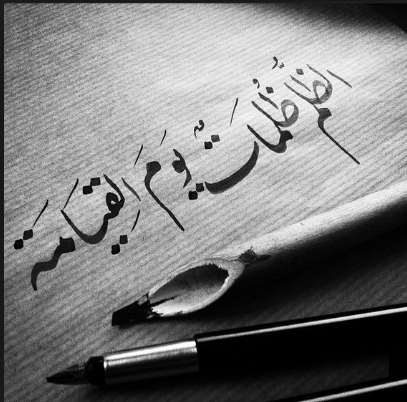 الظلم ظُلمات يومَ القيامة